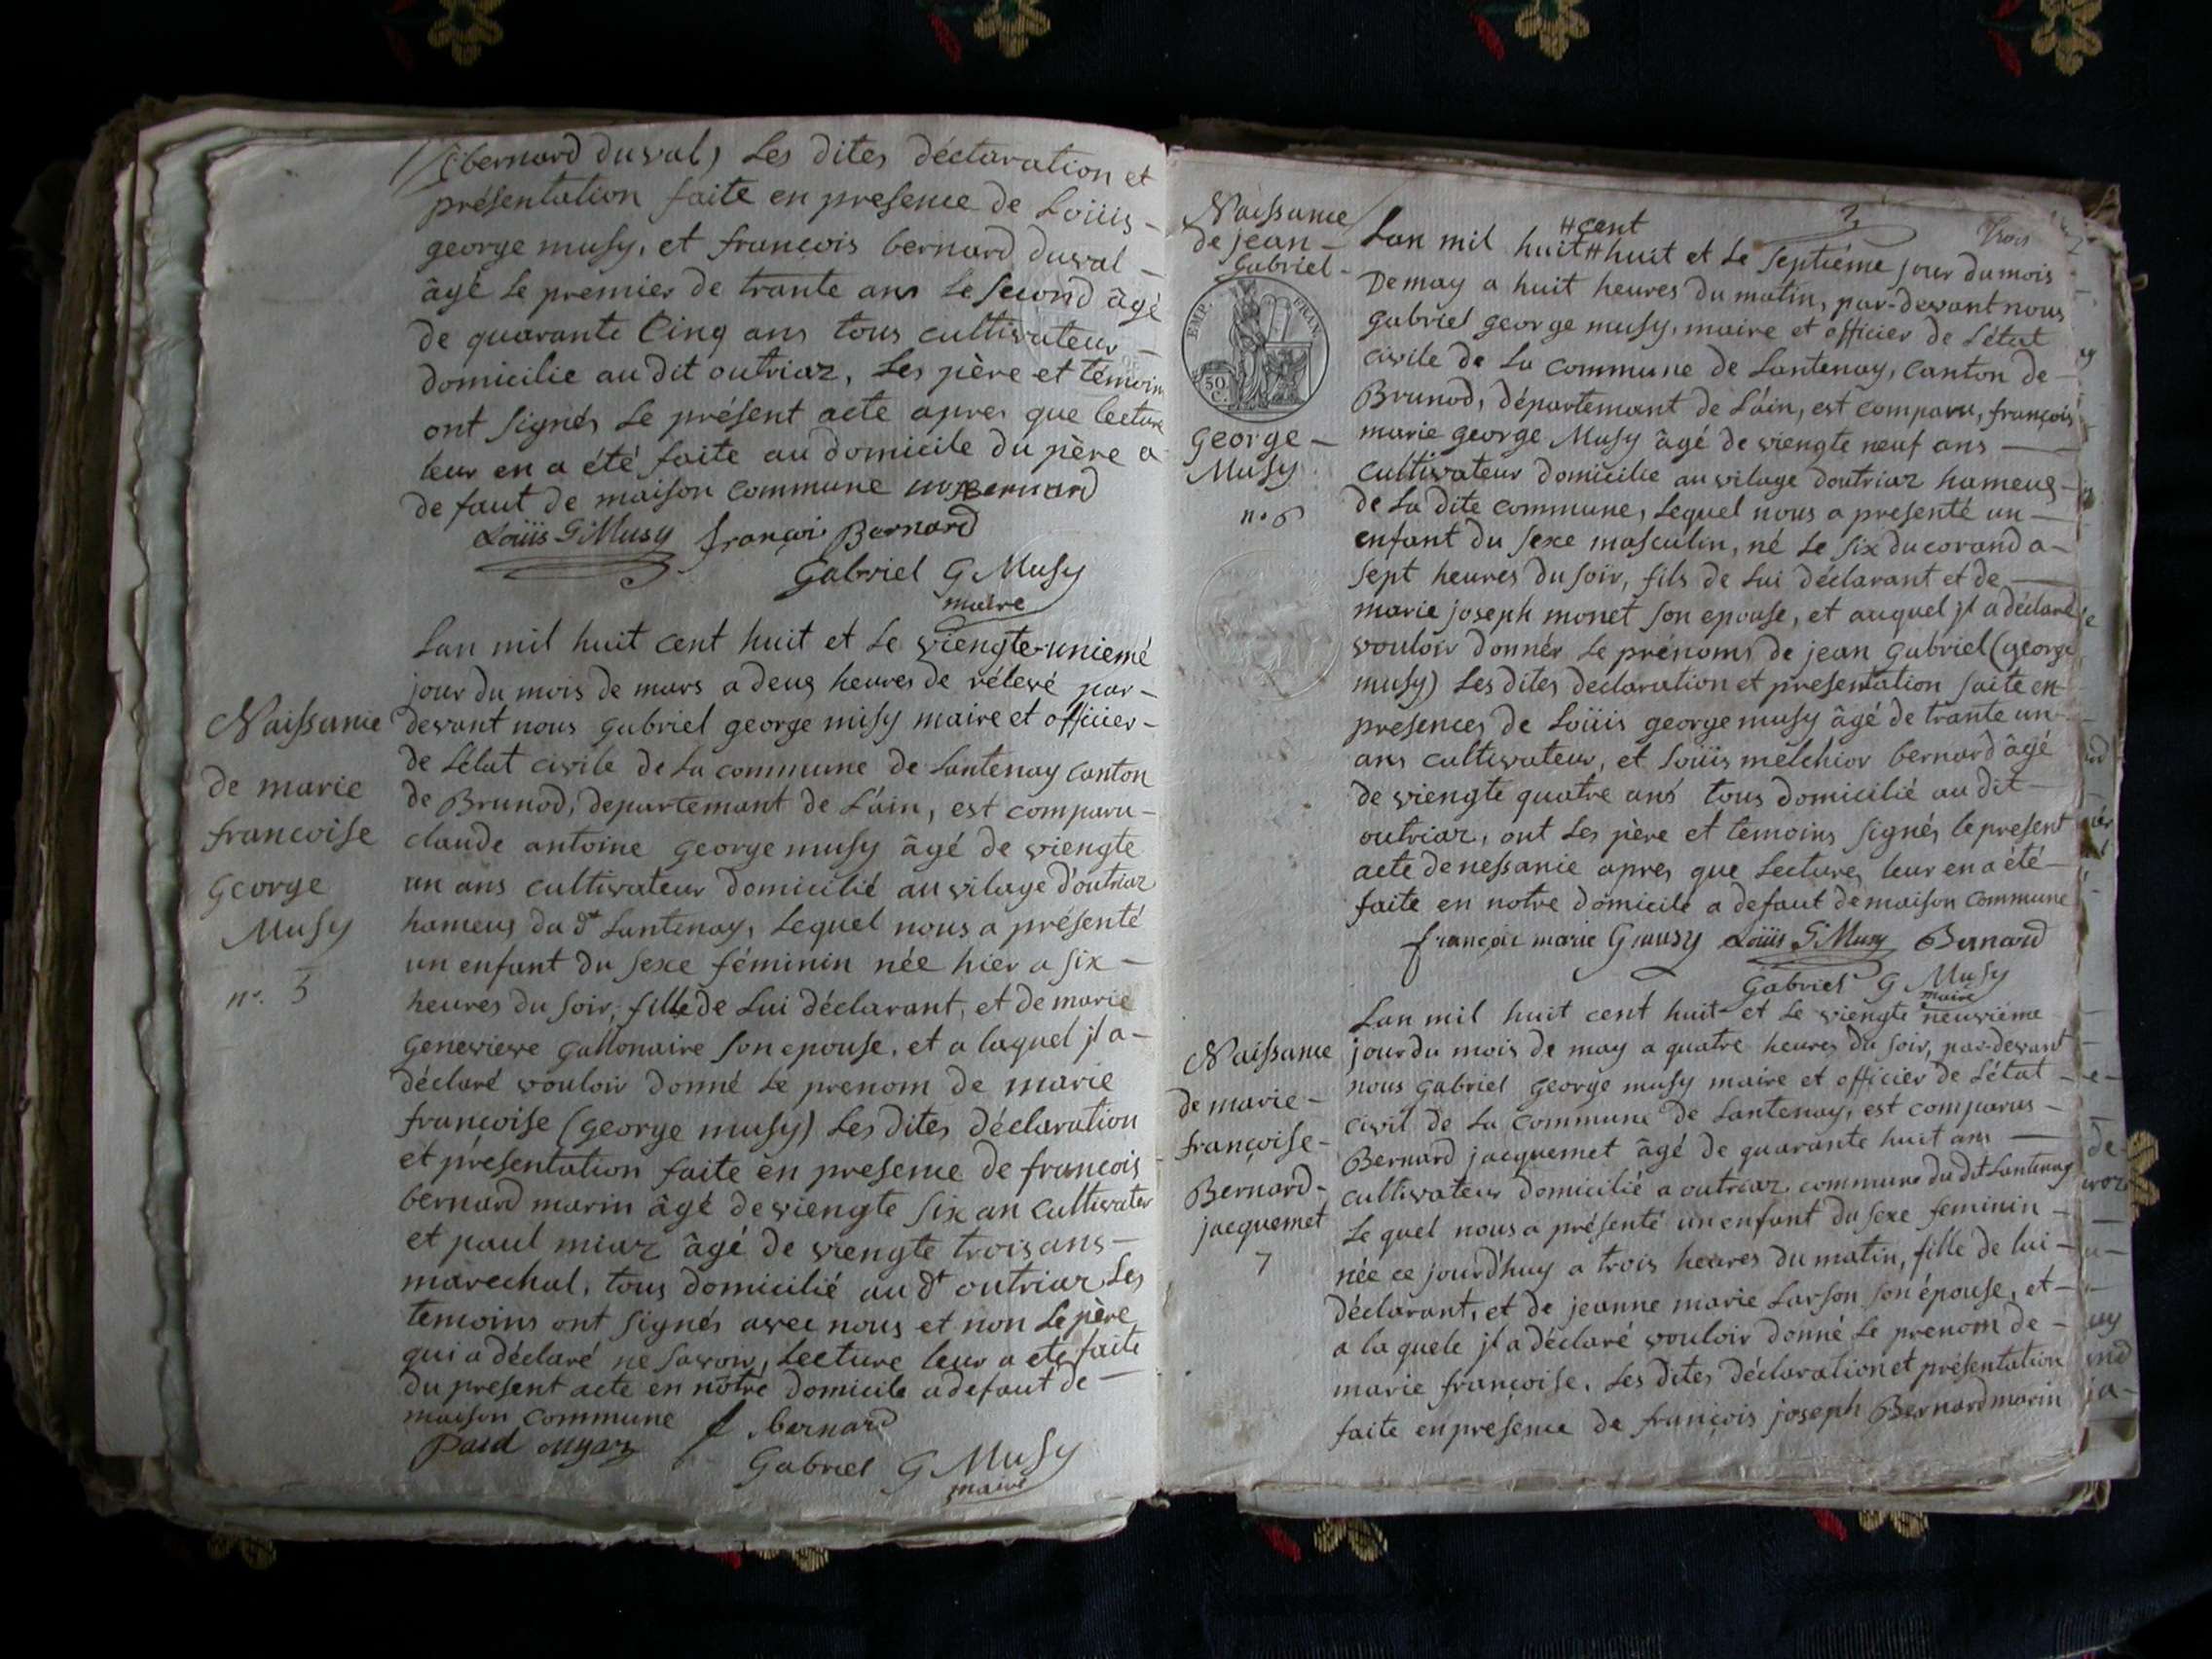 (bernard duval) Les dites déclaration et
présentation faite en presence de Loüis
george musy, et françois bernard duval
âgé le premier de trante ans le second âgé
de quarante Cinq ans tous cultivateur
domicilie au dit outriaz, Les père et témoin
ont signés Le présent acte apres que lecture
leur en a été faite au domicile du père a
de faut de maison commune Bernard
Loüis G Musy françoi Bernard
Gabriel G Musy
maire
Naissance
de marie
francoise
George
Musy
n°. 5
Lan mil huit cent huit et Le viengte-uniemé
jour du mois de mars a deus heures de rélevé par-
devant nous gabriel george misy maire et officier
de L'état civile de La commune de Lantenay canton
de Brunod, departemant de L'ain, est comparu
claude antoine george musy âgé de viengte
un ans cultivateur domicilié au vilage d'outriaz
hameus du dt Lantenay, Lequel nous a présenté
un enfant du sexe féminin née hier a six
heures du soir, fille de Lui déclarant, et de marie
genevieve gallonaire son epouse, et a laquel jl a
déclaré vouloir donné Le prenom de marie
françoise (george musy) Les dites déclaration
et présentation faite en presence de francois
bernard marin âgé de viengte six an Cultivater
et paul miaz âgé de viengte trois ans
marechal, tous domicilié au dt outriaz Les
temoins ont signés avec nous et non Le père
qui a déclaré ne savoir, Lecture leur a ete faite
du present acte en nôtre domicile a defaut de
maison commune f bernard
paul myaz
Gabriel G Musy
maire
3
Trois
Naissance
de jean
Gabriel
EMP. FRAN.
50 C.
George
Musy
n° 6
Lan mil huit ##cent huit et Le septiéme jour du mois
De may a huit heures du matin, par-devant nous
gabriel george musy, maire et officier de L'état
civile de La commune de Lantenay, Canton de
Brunod, département de L'ain, est comparu, françois
marie george Musy âgé de viengte neuf ans
cultivateur domicilie au vilage doutriaz hameus
de La dite commune, Lequel nous a presenté un
enfant du sexe masculin, né Le six du corand a
sept heures du soir, fils de Lui déclarant et de
marie joseph monet son epouse, et auquel jl a déclaré
vouloir donnér Le prénoms de jean gabriel (george
musy) Les dites declaration et presentation faite en
presences de Loüis george musy âgé de trante un
ans cultivateur, et Loüis melchior bernard âgé
de viengte quatre ans tous domicilié au dit
outriaz, ont Les père et temoins signés le present
acte de nessance apres que Lectures leur en a été
faite en notre domicile a defaut de maison commune
françoi marie G musy Loüis G Musy Bernard
Gabriel G Musy
maire
Naissance
de marie
françoise
Bernard
jacquemet
7
Lan mil huit cent huit et Le viengte neuviéme
jour du mois de may a quatre heures du soir, par-devant
nous gabriel george musy maire et officier de L'état
civil de La commune de Lantenay, est comparus
Bernard jacquemet âgé de quarante huit ans
cultivateur domicilié a outriaz commune du dit Lantenay
Le quel nous a présenté un enfant du sexe feminin
née ce jourd'huy a trois heures du matin, fille de lui
déclarant, et de jeanne marie Larson son épouse, et
a la quele jl a déclaré vouloir donné Le prenom de
marie françoise, Les dites déclaration et présentation
faite en presence de françois joseph Bernard marin